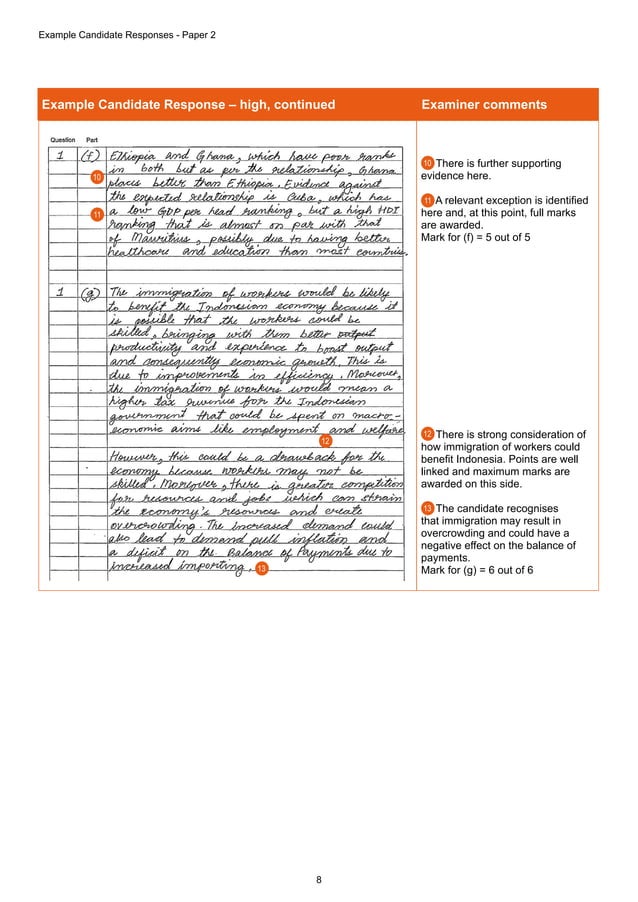 Example Candidate Responses - Paper 2
Example Candidate Response – high, continued
Examiner comments
Question Part
1 (f) Ethiopia and Ghana, which have poor ranks
in both but as per the relationship, Ghana
10
places better than Ethiopia. Evidence against
the expected relationship is Cuba, which has
11
a low GDP per head ranking, but a high HDI
ranking that is almost on par with that
of Mauritius, possibly due to having better
healthcare and education than most countries.
1 (g) The immigration of workers would be likely
to benefit the Indonesian economy because it
is possible that the workers could be
skilled, bringing with them better output
productivity and experience to boost output
and consequently economic growth. This is
due to improvements in efficiency. Moreover,
the immigration of workers would mean a
higher tax revenue for the Indonesian
government that could be spent on macro-
economic aims like employment and welfare.
12
However, this could be a drawback for the
economy because workers may not be
skilled. Moreover, there is greater competition
for resources and jobs which can strain
the economy's resources and create
overcrowding. The increased demand could
also lead to demand pull inflation and
a deficit on the Balance of Payments due to
increased importing. 13
10 There is further supporting
evidence here.
11 A relevant exception is identified
here and, at this point, full marks
are awarded.
Mark for (f) = 5 out of 5
12 There is strong consideration of
how immigration of workers could
benefit Indonesia. Points are well
linked and maximum marks are
awarded on this side.
13 The candidate recognises
that immigration may result in
overcrowding and could have a
negative effect on the balance of
payments.
Mark for (g) = 6 out of 6
8